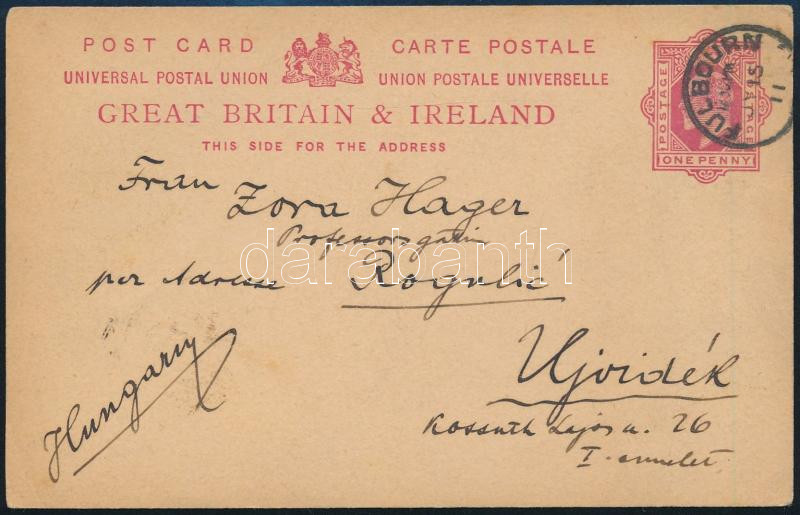 POST CARD CARTE POSTALE
UNIVERSAL POSTAL UNION UNION POSTALE UNIVERSELLE
GREAT BRITAIN & IRELAND
THIS SIDE FOR THE ADDRESS
POSTAGE POSTAGE
ONE PENNY
FULBOURN
11
Frau
Zora Hager
Professorsgattin
per Adresse Rogulić
Ujvidék
Kossuth Lajos u. 26
I. emelet
Hungary
darabanth